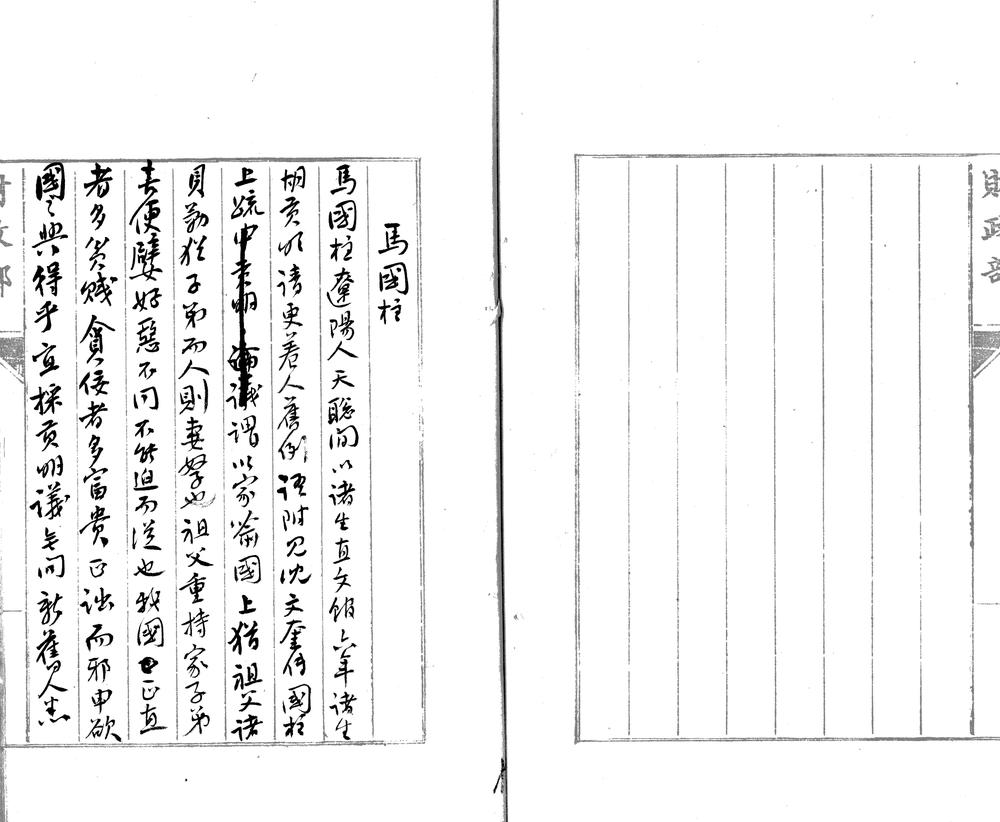 財政部
馬國柱
馬國柱遼陽人天聰間以諸生直文館六年諸生
胡貢明請更養人舊例語附見沈文奎傳國柱
上疏申貢明論議謂以家喻國上猶祖父諸
貝勒猶子弟而人則妻孥也祖父重持家子弟
喜便嬖好惡不同不能迫而從也我國正直
者多貧賤貪佞者多富貴正詘而邪申欲
國之興得乎宜採貢明議無問新舊人悉
財政部